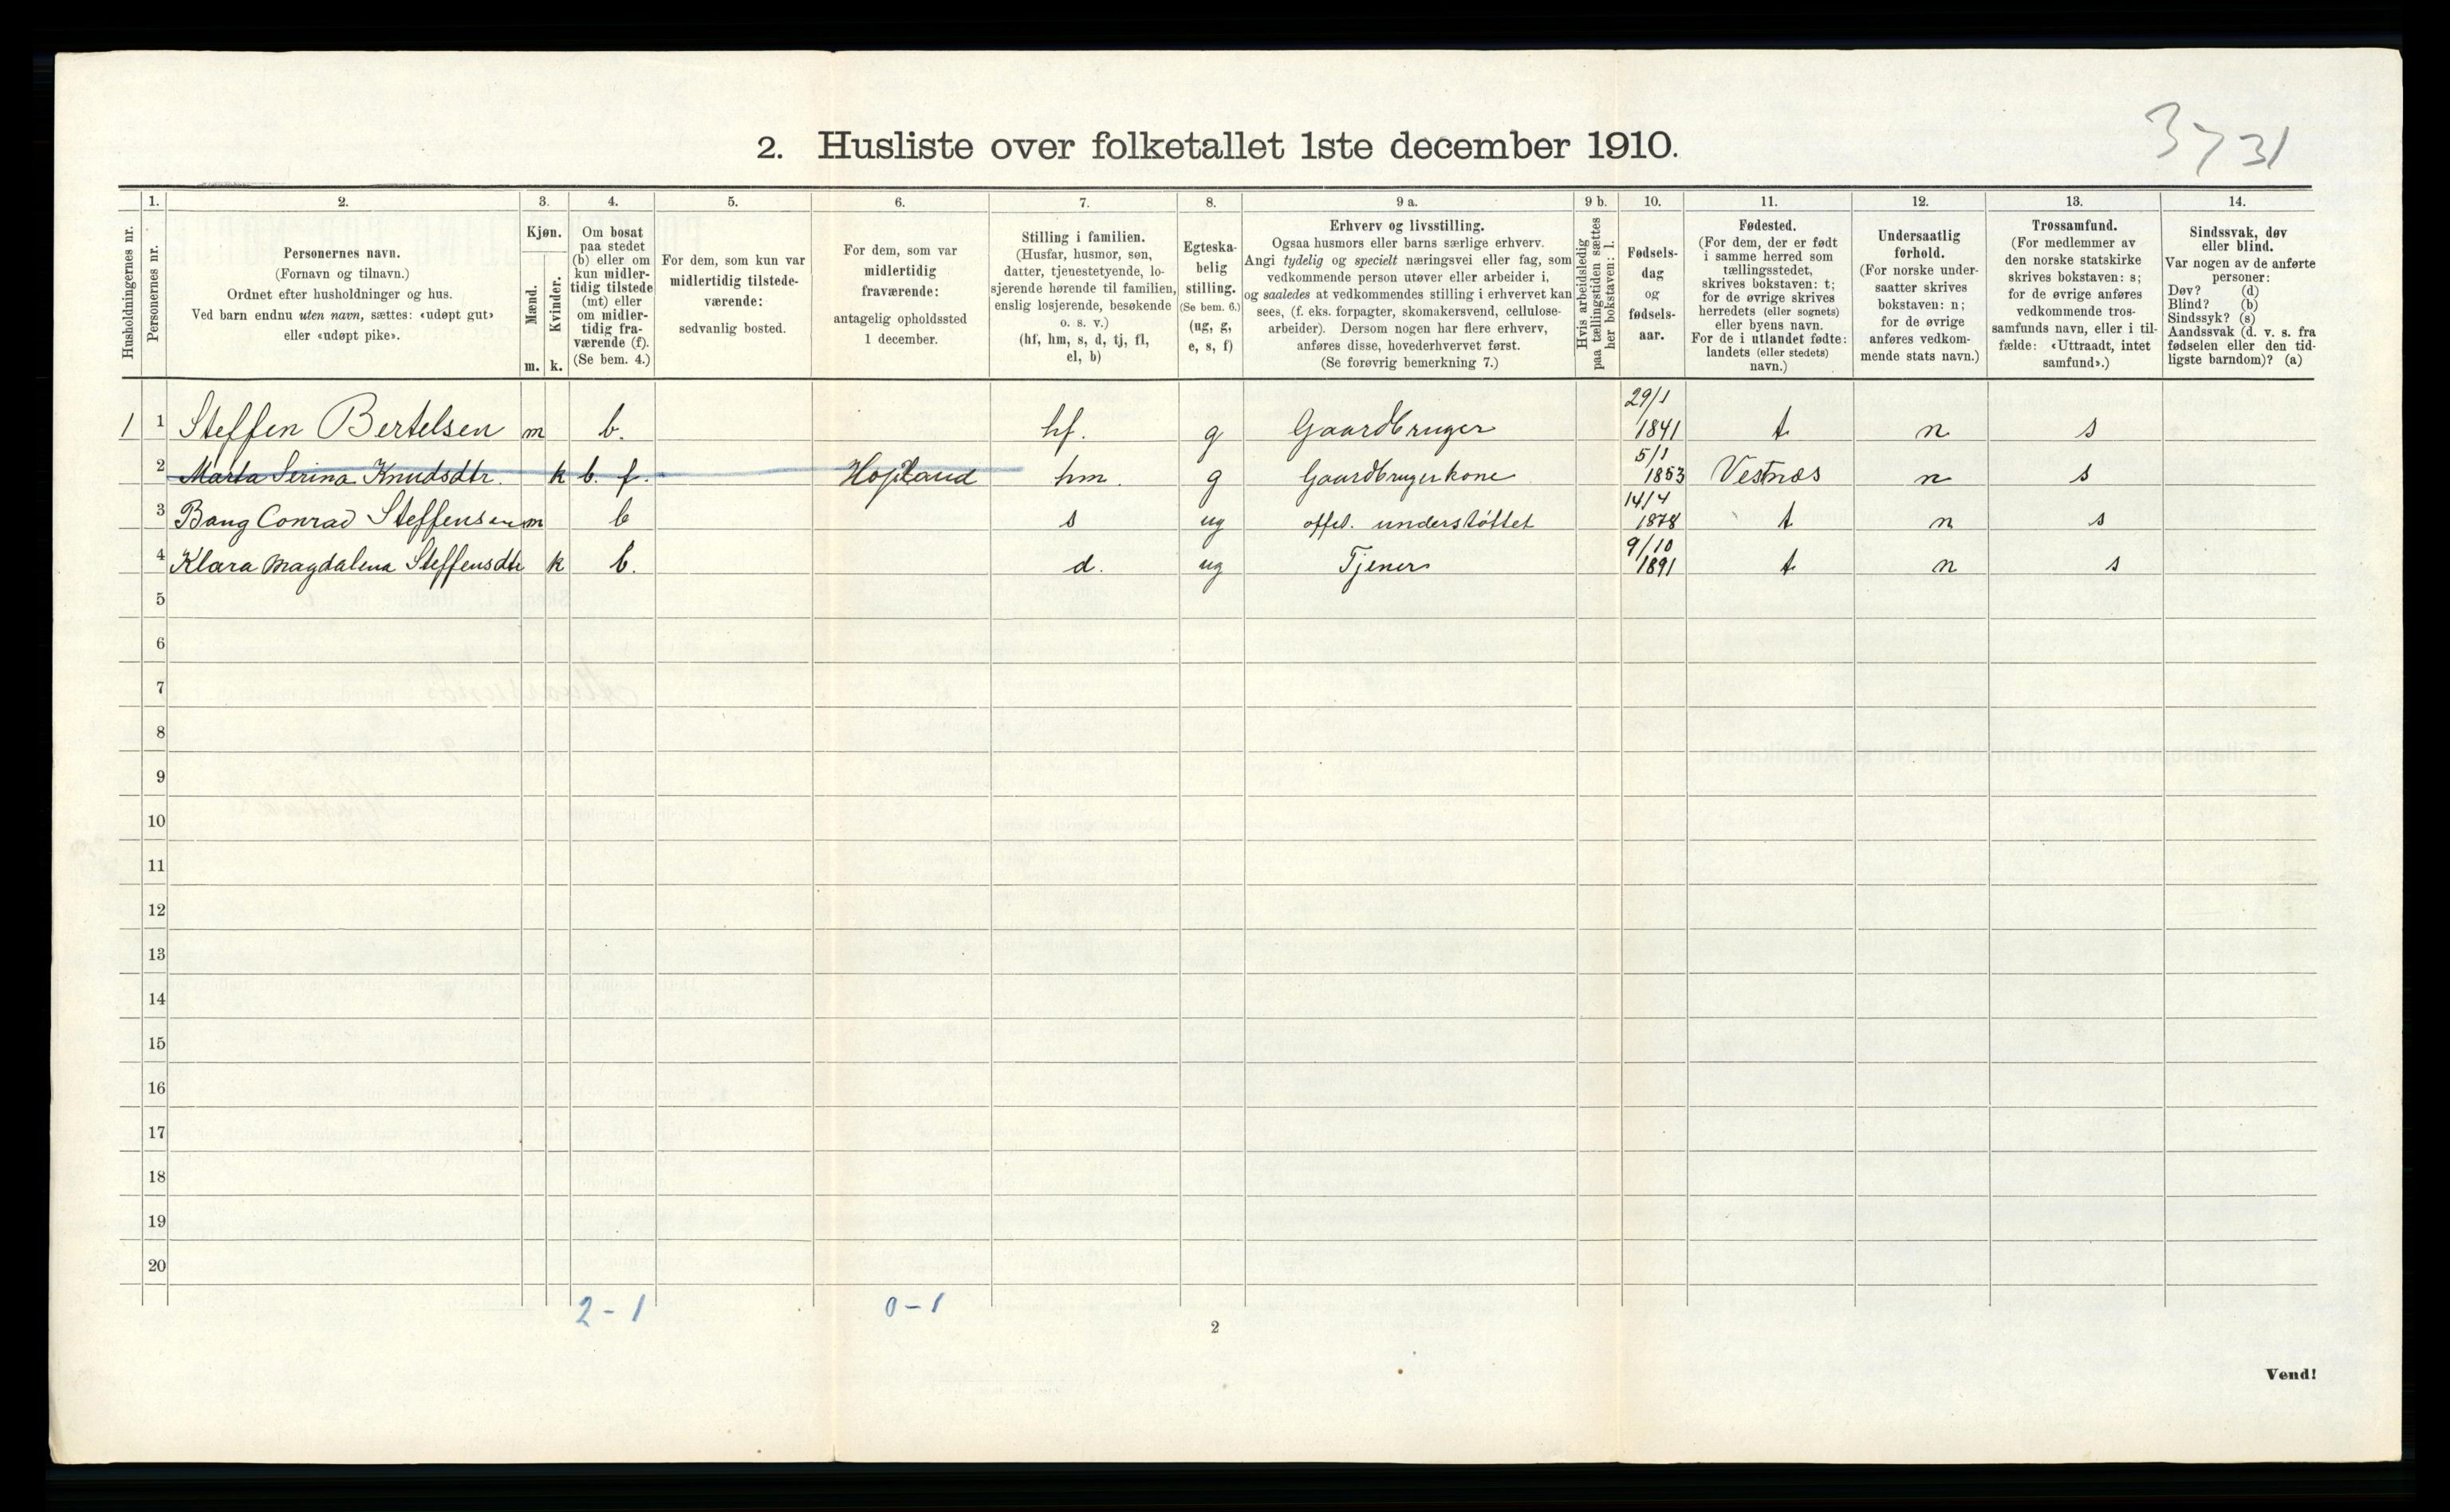 3731
2. Husliste over folketallet 1ste december 1910.
1. 2. 3. 4. 5. 6. 7. 8. 9 a. 9 b. 10. 11. 12. 13. 14.
Husholdningernes nr.
Personernes nr.
Personernes navn.
(Fornavn og tilnavn.)
Ordnet efter husholdninger og hus.
Ved barn endnu uten navn, sættes: «udøpt gut»
eller «udøpt pike».
Kjøn.
Mænd.
Kvinder.
m. k.
Om bosat
paa stedet
(b) eller om
kun midler-
tidig tilstede
(mt) eller
om midler-
tidig fra-
værende (f).
(Se bem. 4.)
For dem, som kun var
midlertidig tilstede-
værende:
sedvanlig bosted.
For dem, som var
midlertidig
fraværende:
antagelig opholdssted
1 december.
Stilling i familien.
(Husfar, husmor, søn,
datter, tjenestetyende, lo-
sjerende hørende til familien,
enslig losjerende, besøkende
o. s. v.)
(hf, hm, s, d, tj, fl,
el, b)
Egteska-
belig
stilling.
(Se bem. 6.)
(ug, g,
e, s, f)
Erhverv og livsstilling.
Ogsaa husmors eller barns særlige erhverv.
Angi tydelig og specielt næringsvei eller fag, som
vedkommende person utøver eller arbeider i,
og saaledes at vedkommendes stilling i erhvervet kan
sees, (f. eks. forpagter, skomakersvend, cellulose-
arbeider). Dersom nogen har flere erhverv,
anføres disse, hovederhvervet først.
(Se forøvrig bemerkning 7.)
Hvis arbeidsledig
paa tællingstiden sættes
her bokstaven: l.
Fødsels-
dag
og
fødsels-
aar.
Fødested.
(For dem, der er født
i samme herred som
tællingsstedet,
skrives bokstaven: t;
for de øvrige skrives
herredets (eller sognets)
eller byens navn.
For de i utlandet fødte:
landets (eller stedets)
navn.)
Undersaatlig
forhold.
(For norske under-
saatter skrives
bokstaven: n;
for de øvrige
anføres vedkom-
mende stats navn.)
Trossamfund.
(For medlemmer av
den norske statskirke
skrives bokstaven: s;
for de øvrige anføres
vedkommende tros-
samfunds navn, eller i til-
fælde: «Uttraadt, intet
samfund».)
Sindssvak, døv
eller blind.
Var nogen av de anførte
personer:
Døv? (d)
Blind? (b)
Sindssyk? (s)
Aandssvak (d. v. s. fra
fødselen eller den tid-
ligste barndom)? (a)
1 1 Steffen Bertelsen m b. hf. g Gaardbruger 29/1 1841 t n s
2 Marta Serina Knudsdtr. k b. f. Hopland hm. g Gaardbrugerkone 5/1 1853 Vestnæs n s
3 Bang Conrad Steffensen m b s ug offel. understøttet 14/4 1878 t n s
4 Klara Magdalena Steffensdtr k b. d. ug Tjener 9/10 1891 t n s
5
6
7
8
9
10
11
12
13
14
15
16
17
18
19
20
2 - 1 0 - 1
2
Vend!